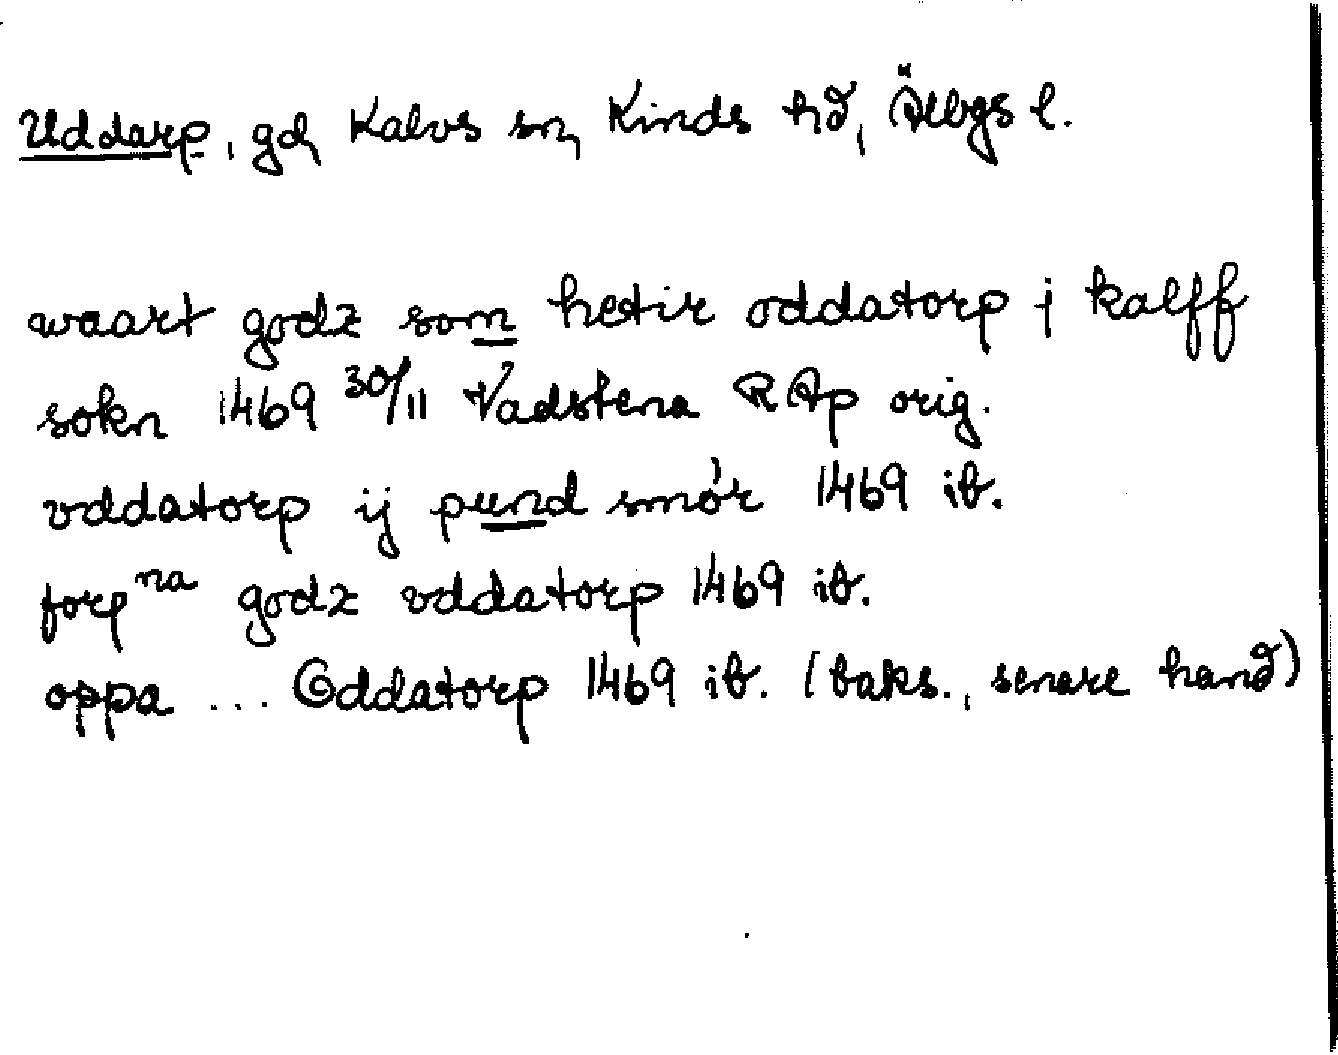 Uddarp, gd, Kalvs sn, Kinds hd, Älvbgs l.
waart godz som hetir oddatorp j kalff
sokn 1469 30/11 Vadstena RAp orig.
vddatorp ij pund smör 1469 ib.
forp na godz vddatorp 1469 ib.
oppa ... Oddatorp 1469 ib. (baks., senare hand)